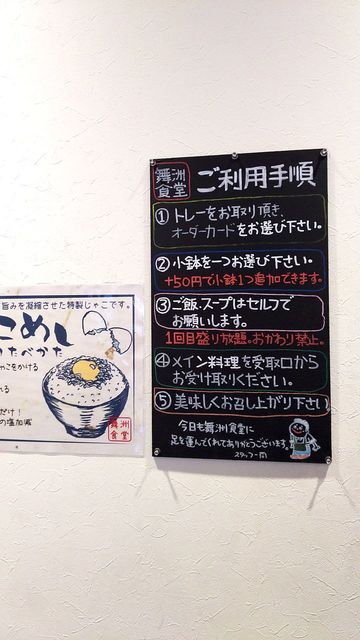 舞洲食堂 ご利用手順
① トレーをお取り頂き、
オーダーカードをお選び下さい。
② 小鉢を一つお選び下さい。
+50円で小鉢1つ追加できます。
③ ご飯、スープはセルフで
お願いします。
1回目盛り放題。おかわり禁止。
④ メイン料理を受取口から
お受け取りください。
⑤ 美味しくお召し上がり下さい
今日も舞洲食堂に
足を運んでくれてありがとうございます。
スタッフ一同
旨みを凝縮させた特製じゃこです。
こめし
のたべかた
ゃこをかける
れる
だけ！
の塩加減
舞洲食堂